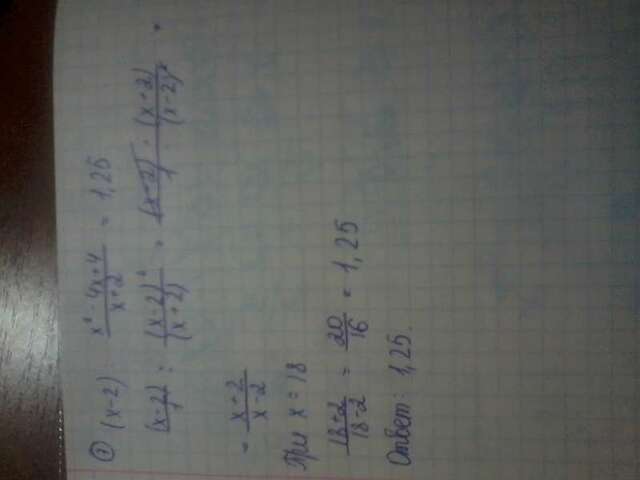 ① (x-2) (x²-4x+4)/(x+2) = 1,25
(x-2)/1 : (x-2)²/(x+2) = (x-2)/1 · (x+2)/(x-2)² =
= (x+2)/(x-2)
При x = 18
(18+2)/(18-2) = 20/16 = 1,25
Ответ: 1,25.